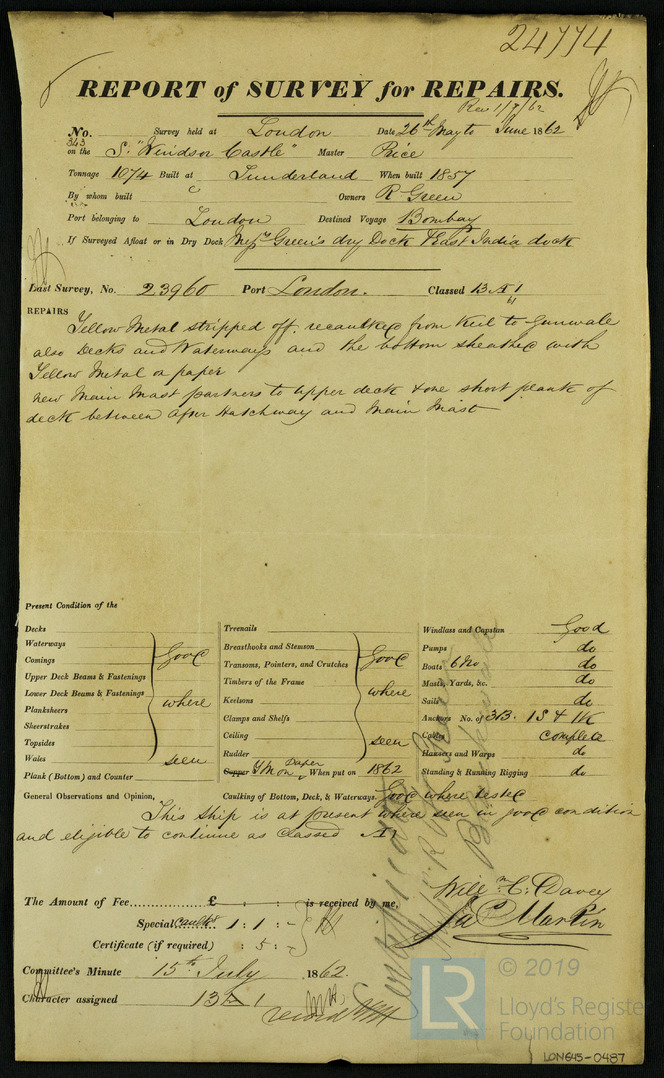 24774
REPORT of SURVEY for REPAIRS.
Rec 1/7/62
No. 343 Survey held at London Date 26th May to June 1862
on the S. "Windsor Castle" Master Price
Tonnage 1074 Built at Sunderland When built 1857
By whom built Owners R Green
Port belonging to London Destined Voyage Bombay
If Surveyed Afloat or in Dry Dock Messrs Green's dry Dock & East India dock
Last Survey, No. 23960 Port London. Classed 13 A 1
61
REPAIRS
Yellow Metal stripped off. recaulked from Keel to Gunwale
also Decks and Waterways and the bottom sheathed with
Yellow Metal on paper
new Main Mast partners to upper deck & one short plank of
deck between after Hatchway and Main Mast
Present Condition of the
Decks
Waterways
Comings
Upper Deck Beams & Fastenings
Lower Deck Beams & Fastenings
Planksheers
Sheerstrakes
Topsides
Wales
Plank (Bottom) and Counter
Good
where
seen
Treenails
Breasthooks and Stemson
Transoms, Pointers, and Crutches
Timbers of the Frame
Keelsons
Clamps and Shelfs
Ceiling
Rudder
Good
where
seen
Copper Y M on Paper, When put on 1862
Windlass and Capstan Good
Pumps do
Boats 6 No do
Masts, Yards, &c. do
Sails do
Anchors No. of 3B. 1S & 1K
Cables complete
Hawsers and Warps do
Standing & Running Rigging do
General Observations and Opinion, Caulking of Bottom, Deck, & Waterways. Good where tested
This Ship is at present where seen in good condition
and eligible to continue as classed A1
The Amount of Fee £ : : is received by me,
Special Caulkg 1 : 1 : -
Certificate (if required) : 5 : -
Willm C. Davey
Jas Martin
Committee's Minute 15th July 1862
Character assigned 13 A 1
LR
© 2019
Lloyd's Register
Foundation
LON645-0487